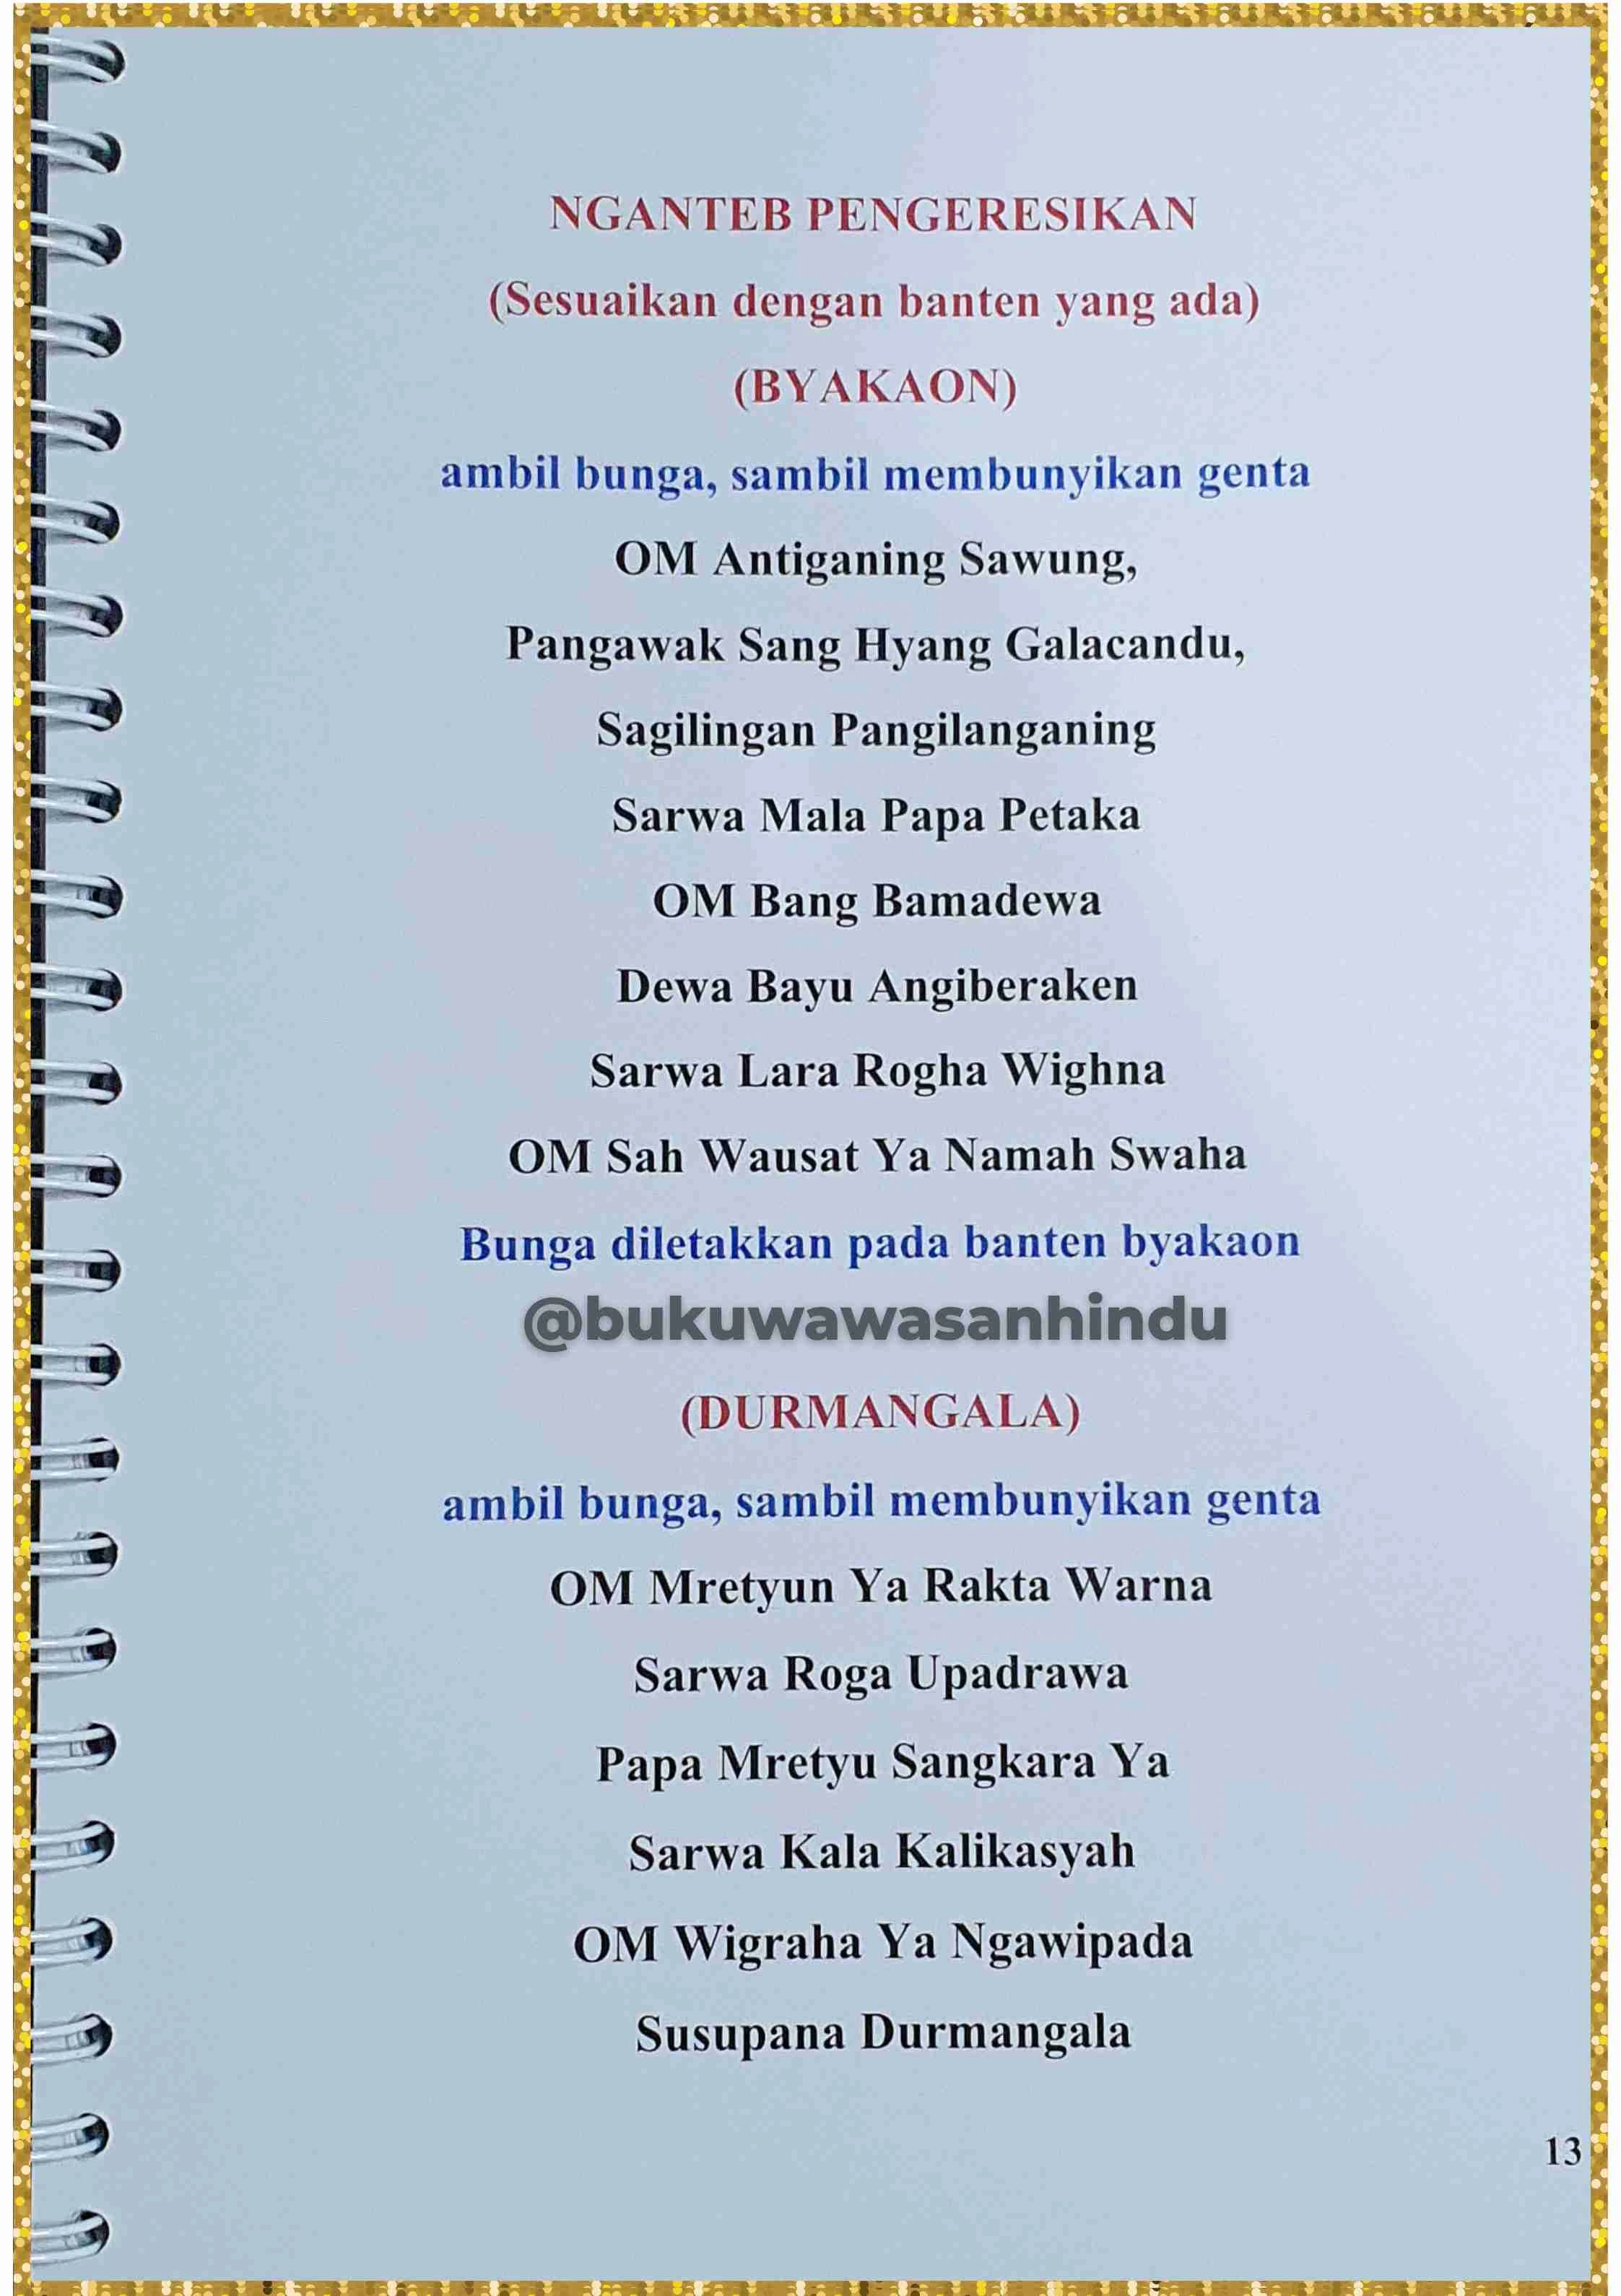 NGANTEB PENGERESIKAN
(Sesuaikan dengan banten yang ada)
(BYAKAON)
ambil bunga, sambil membunyikan genta
OM Antiganing Sawung,
Pangawak Sang Hyang Galacandu,
Sagilingan Pangilanganing
Sarwa Mala Papa Petaka
OM Bang Bamadewa
Dewa Bayu Angiberaken
Sarwa Lara Rogha Wighna
OM Sah Wausat Ya Namah Swaha
Bunga diletakkan pada banten byakaon
@bukuwawasanhindu
(DURMANGALA)
ambil bunga, sambil membunyikan genta
OM Mretyun Ya Rakta Warna
Sarwa Roga Upadrawa
Papa Mretyu Sangkara Ya
Sarwa Kala Kalikasyah
OM Wigraha Ya Ngawipada
Susupana Durmangala
13